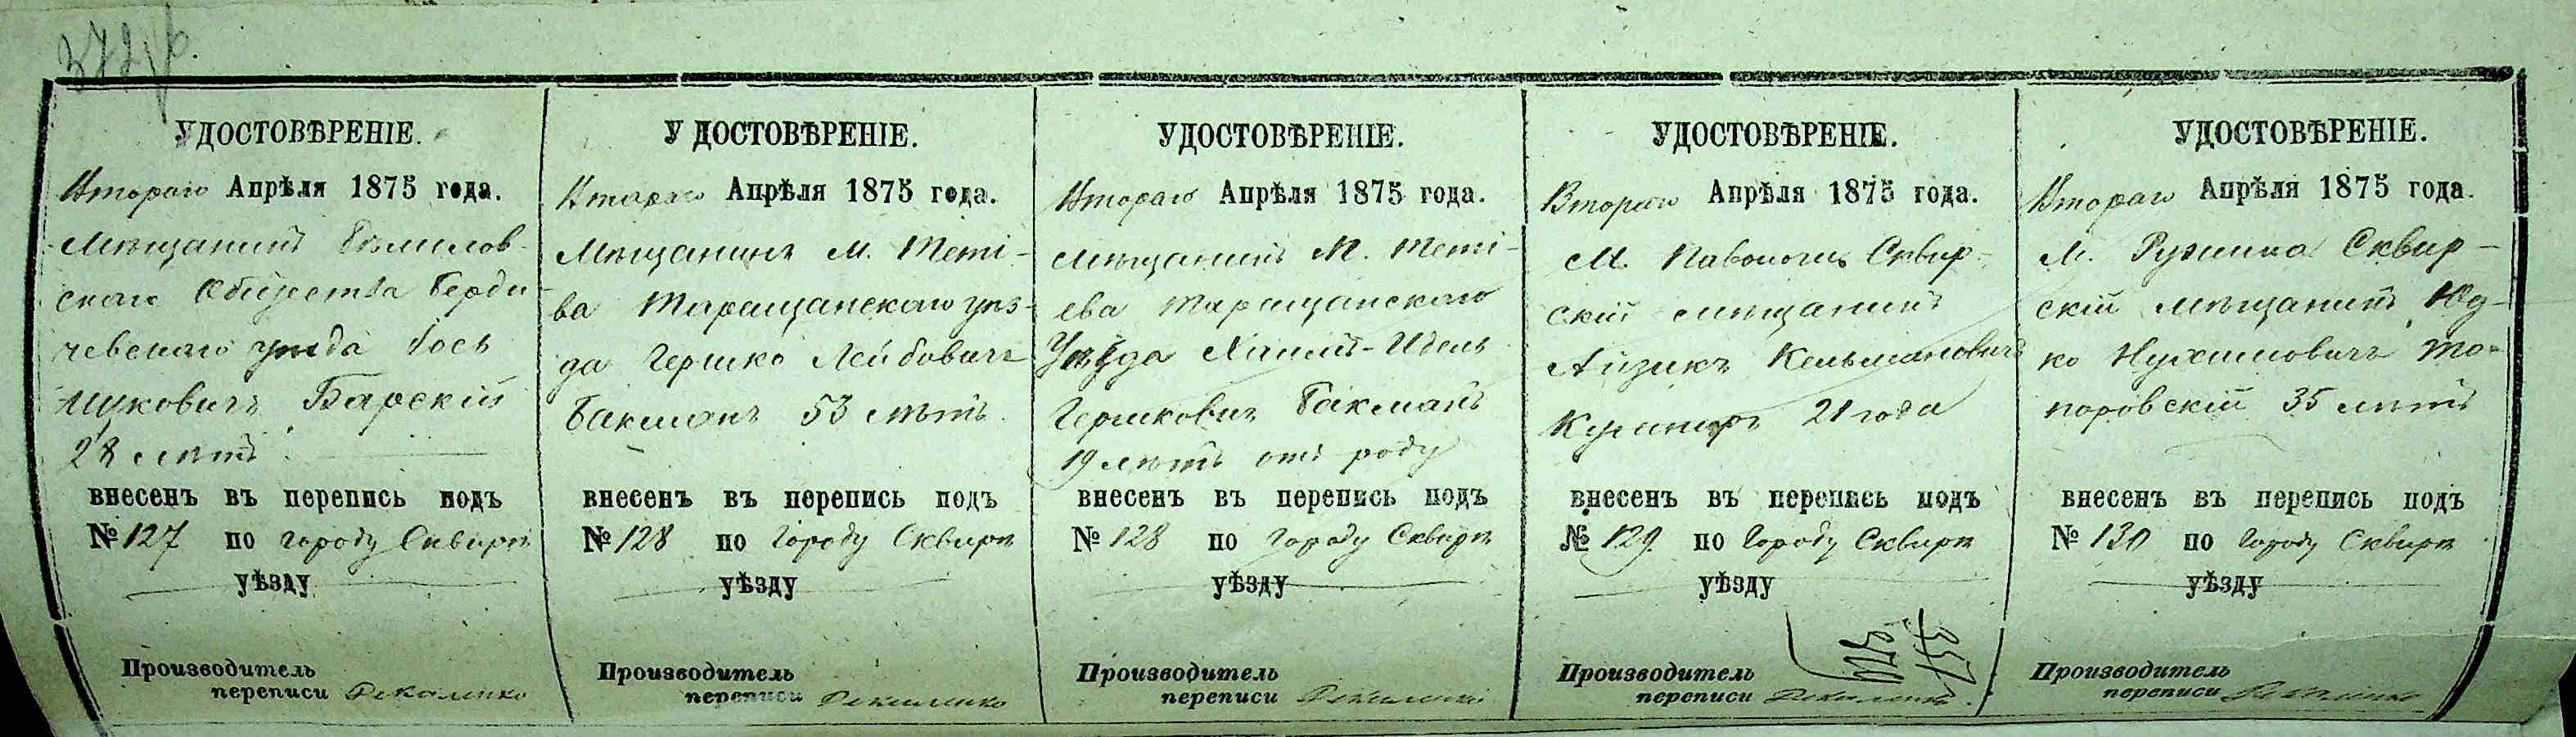 УДОСТОВѢРЕНІЕ.
Втораго Апрѣля 1875 года.
Мѣщанинъ Бѣлилов-
скаго Общества Берди-
чевскаго уѣзда Іось
Ицковичъ Барскій
28 лѣтъ
внесенъ въ перепись подъ
№ 127 по городу Сквирѣ
уѣзду
Производитель
переписи
УДОСТОВѢРЕНІЕ.
Втораго Апрѣля 1875 года.
Мѣщанинъ М. Теті-
ва Таращанскаго уѣз-
да Гершко Лейбовичъ
Бакманъ 53 лѣтъ.
внесенъ въ перепись подъ
№ 128 по городу Сквирѣ
уѣзду
Производитель
переписи
УДОСТОВѢРЕНІЕ.
Втораго Апрѣля 1875 года.
Мѣщанинъ М. Теті-
ева Таращанскаго
Уѣзда Хаимъ-Идель
Гершкович Бакманъ
19 лѣтъ отъ роду
внесенъ въ перепись подъ
№ 128 по городу Сквирѣ
уѣзду
Производитель
переписи
УДОСТОВѢРЕНІЕ.
Втораго Апрѣля 1875 года.
М. Паволочь Сквир-
скій мѣщанинъ
Айзикъ Кельмановичъ
21 года
внесенъ въ перепись подъ
№ 129 по городу Сквирѣ
уѣзду
357
370
Производитель
переписи
УДОСТОВѢРЕНІЕ.
Втораго Апрѣля 1875 года.
М. Ружина Сквир-
скій мѣщанинъ Юд-
ко Нухимовичъ То-
поровскій 35 лѣтъ
внесенъ въ перепись подъ
№ 130 по городу Сквирѣ
уѣзду
Производитель
переписи